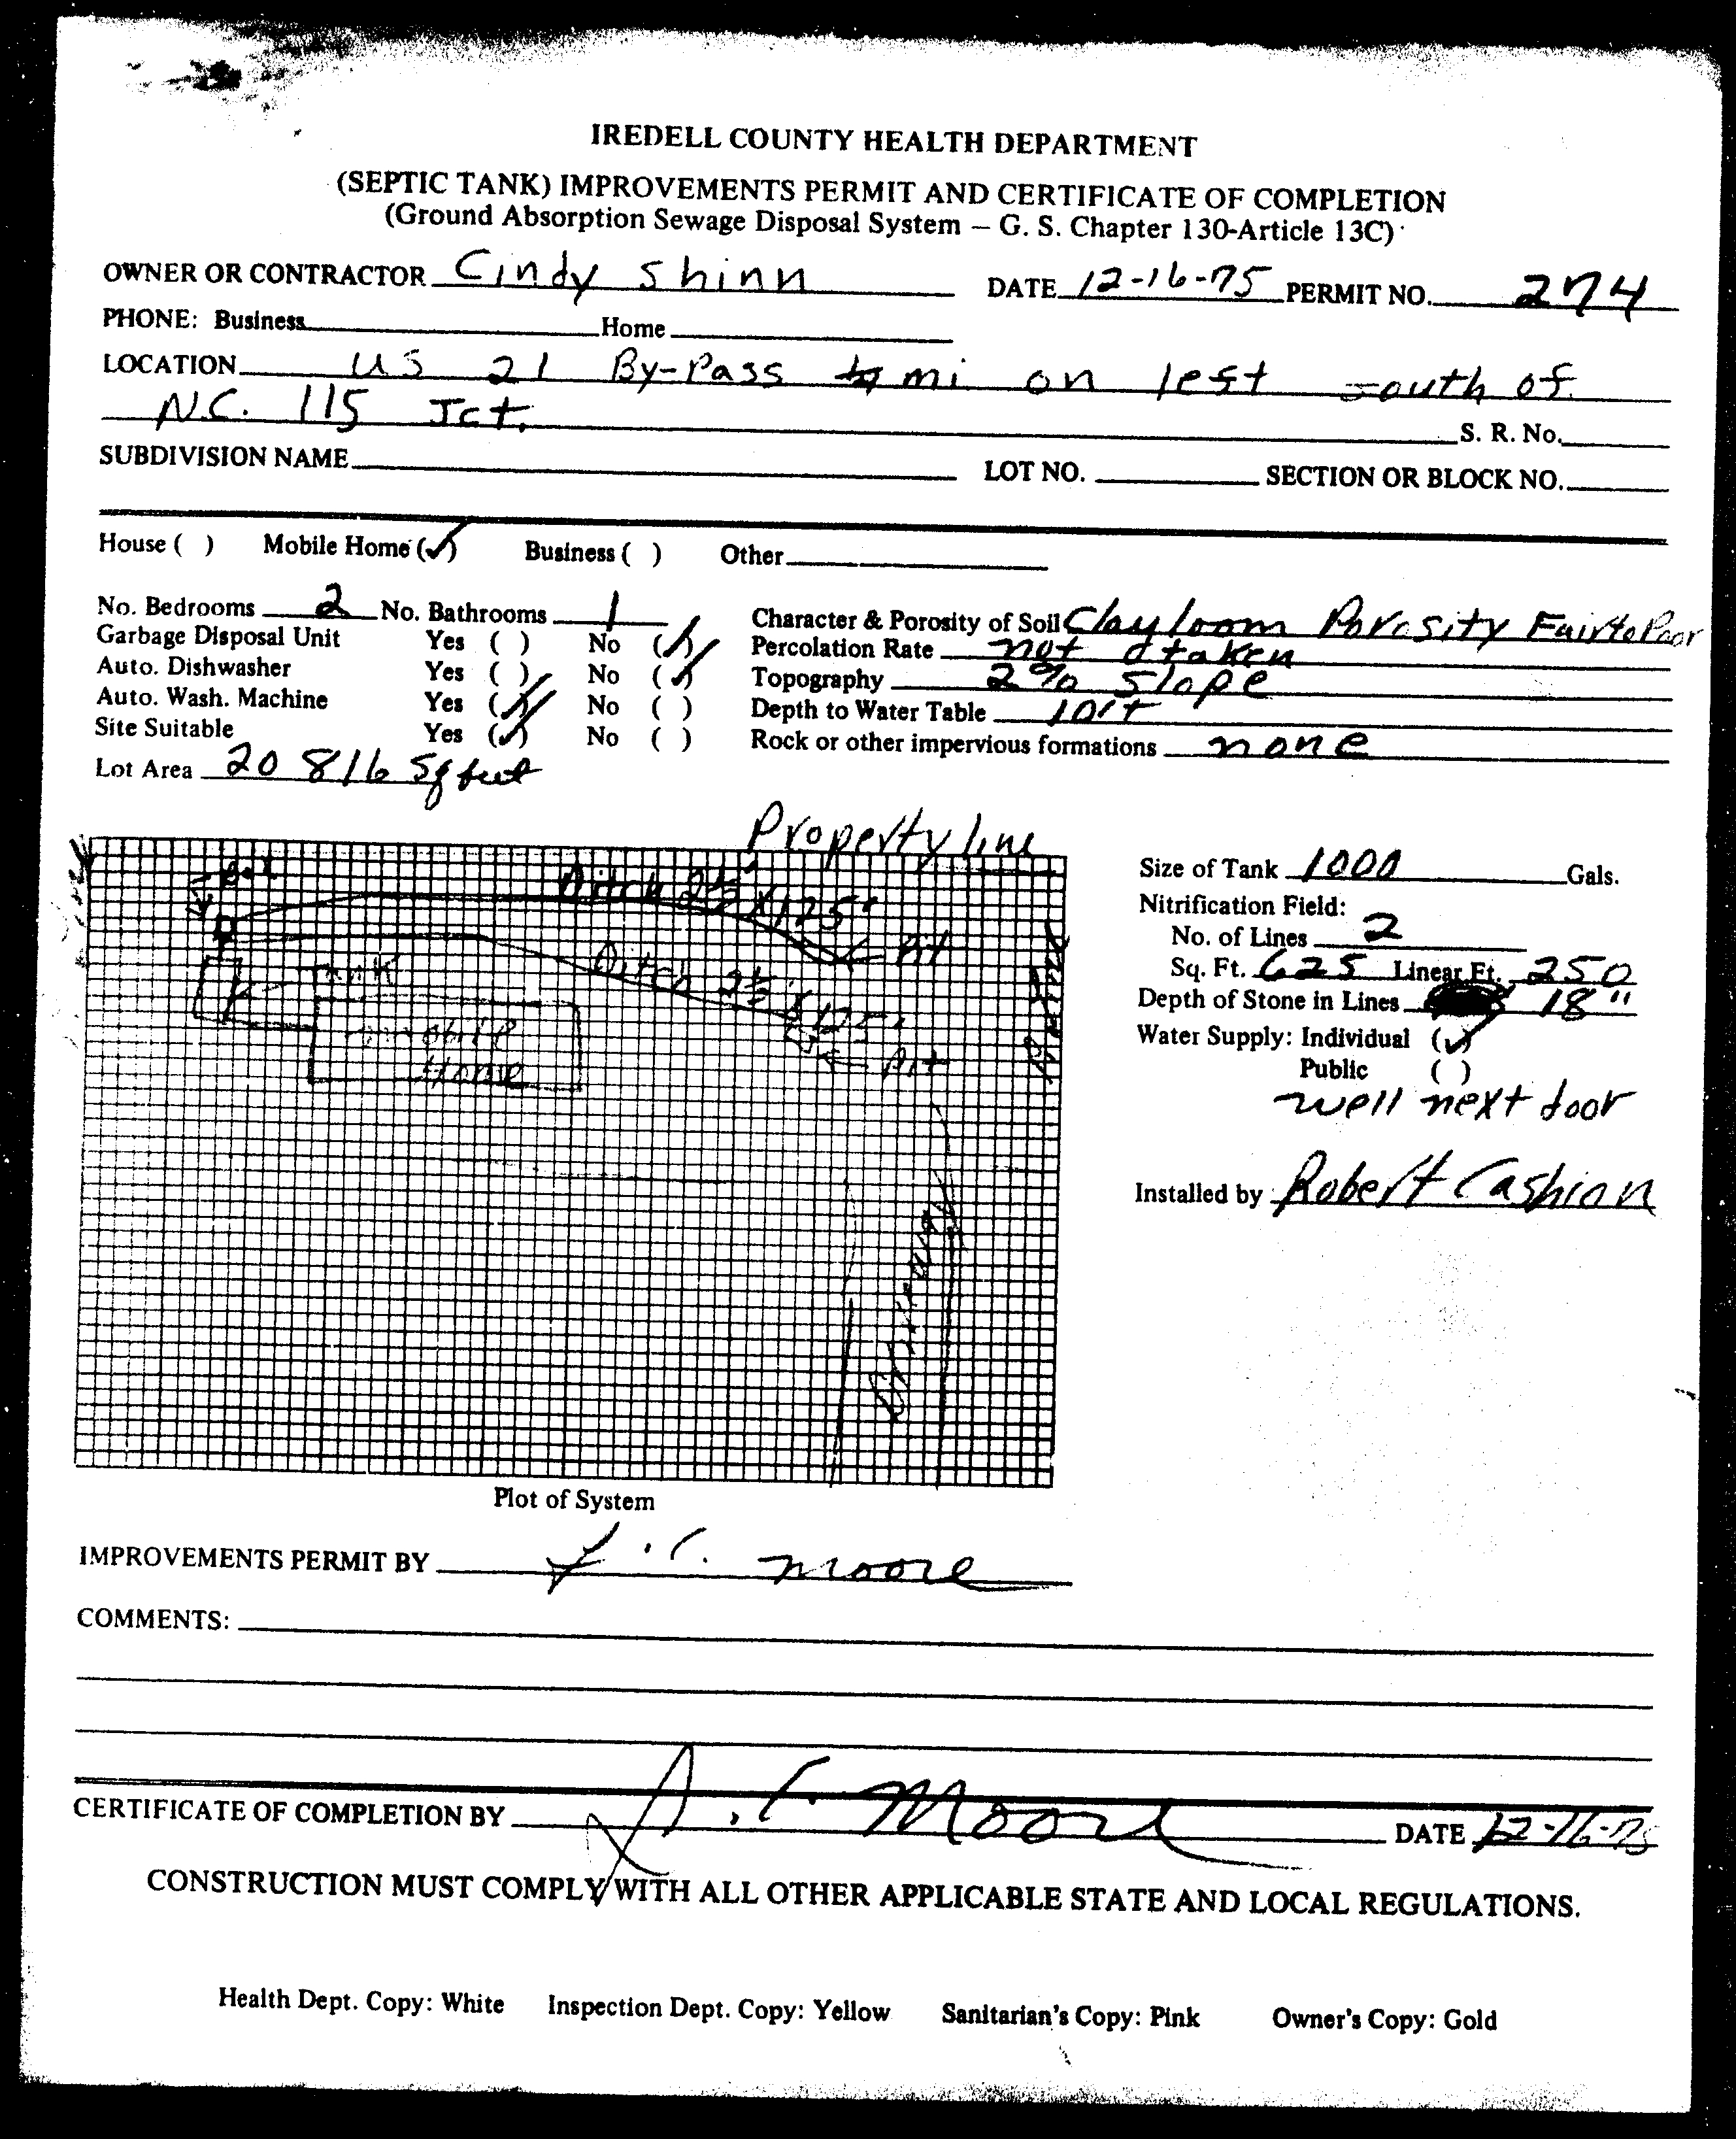 IREDELL COUNTY HEALTH DEPARTMENT
(SEPTIC TANK) IMPROVEMENTS PERMIT AND CERTIFICATE OF COMPLETION
(Ground Absorption Sewage Disposal System – G. S. Chapter 130-Article 13C)
OWNER OR CONTRACTOR Cindy Shinn DATE 12-16-75 PERMIT NO. 274
PHONE: Business Home
LOCATION US 21 By-Pass mi on lest south of
N.C. 115 Jct. S. R. No.
SUBDIVISION NAME LOT NO. SECTION OR BLOCK NO.
House ( ) Mobile Home (✓) Business ( ) Other
No. Bedrooms 2 No. Bathrooms 1
Garbage Disposal Unit Yes ( ) No (✓)
Auto. Dishwasher Yes ( ) No (✓)
Auto. Wash. Machine Yes (✓) No ( )
Site Suitable Yes (✓) No ( )
Lot Area 20 816 Sq feet
Character & Porosity of Soil Clayloom Porosity Fair to Poor
Percolation Rate not taken
Topography 2% Slope
Depth to Water Table 10'+
Rock or other impervious formations none
Property line
Box
Ditch 2½' X 125'
Pit
TANK
Ditch 2½' X 125'
Mobile
Home
Pit
Driveway
Plot of System
Size of Tank 1000 Gals.
Nitrification Field:
No. of Lines 2
Sq. Ft. 625 Linear Ft. 250
Depth of Stone in Lines 18"
Water Supply: Individual (✓)
Public ( )
well next door
Installed by Robert Cashion
IMPROVEMENTS PERMIT BY Moore
COMMENTS:
CERTIFICATE OF COMPLETION BY Moore DATE 12-16-75
CONSTRUCTION MUST COMPLY WITH ALL OTHER APPLICABLE STATE AND LOCAL REGULATIONS.
Health Dept. Copy: White Inspection Dept. Copy: Yellow Sanitarian's Copy: Pink Owner's Copy: Gold